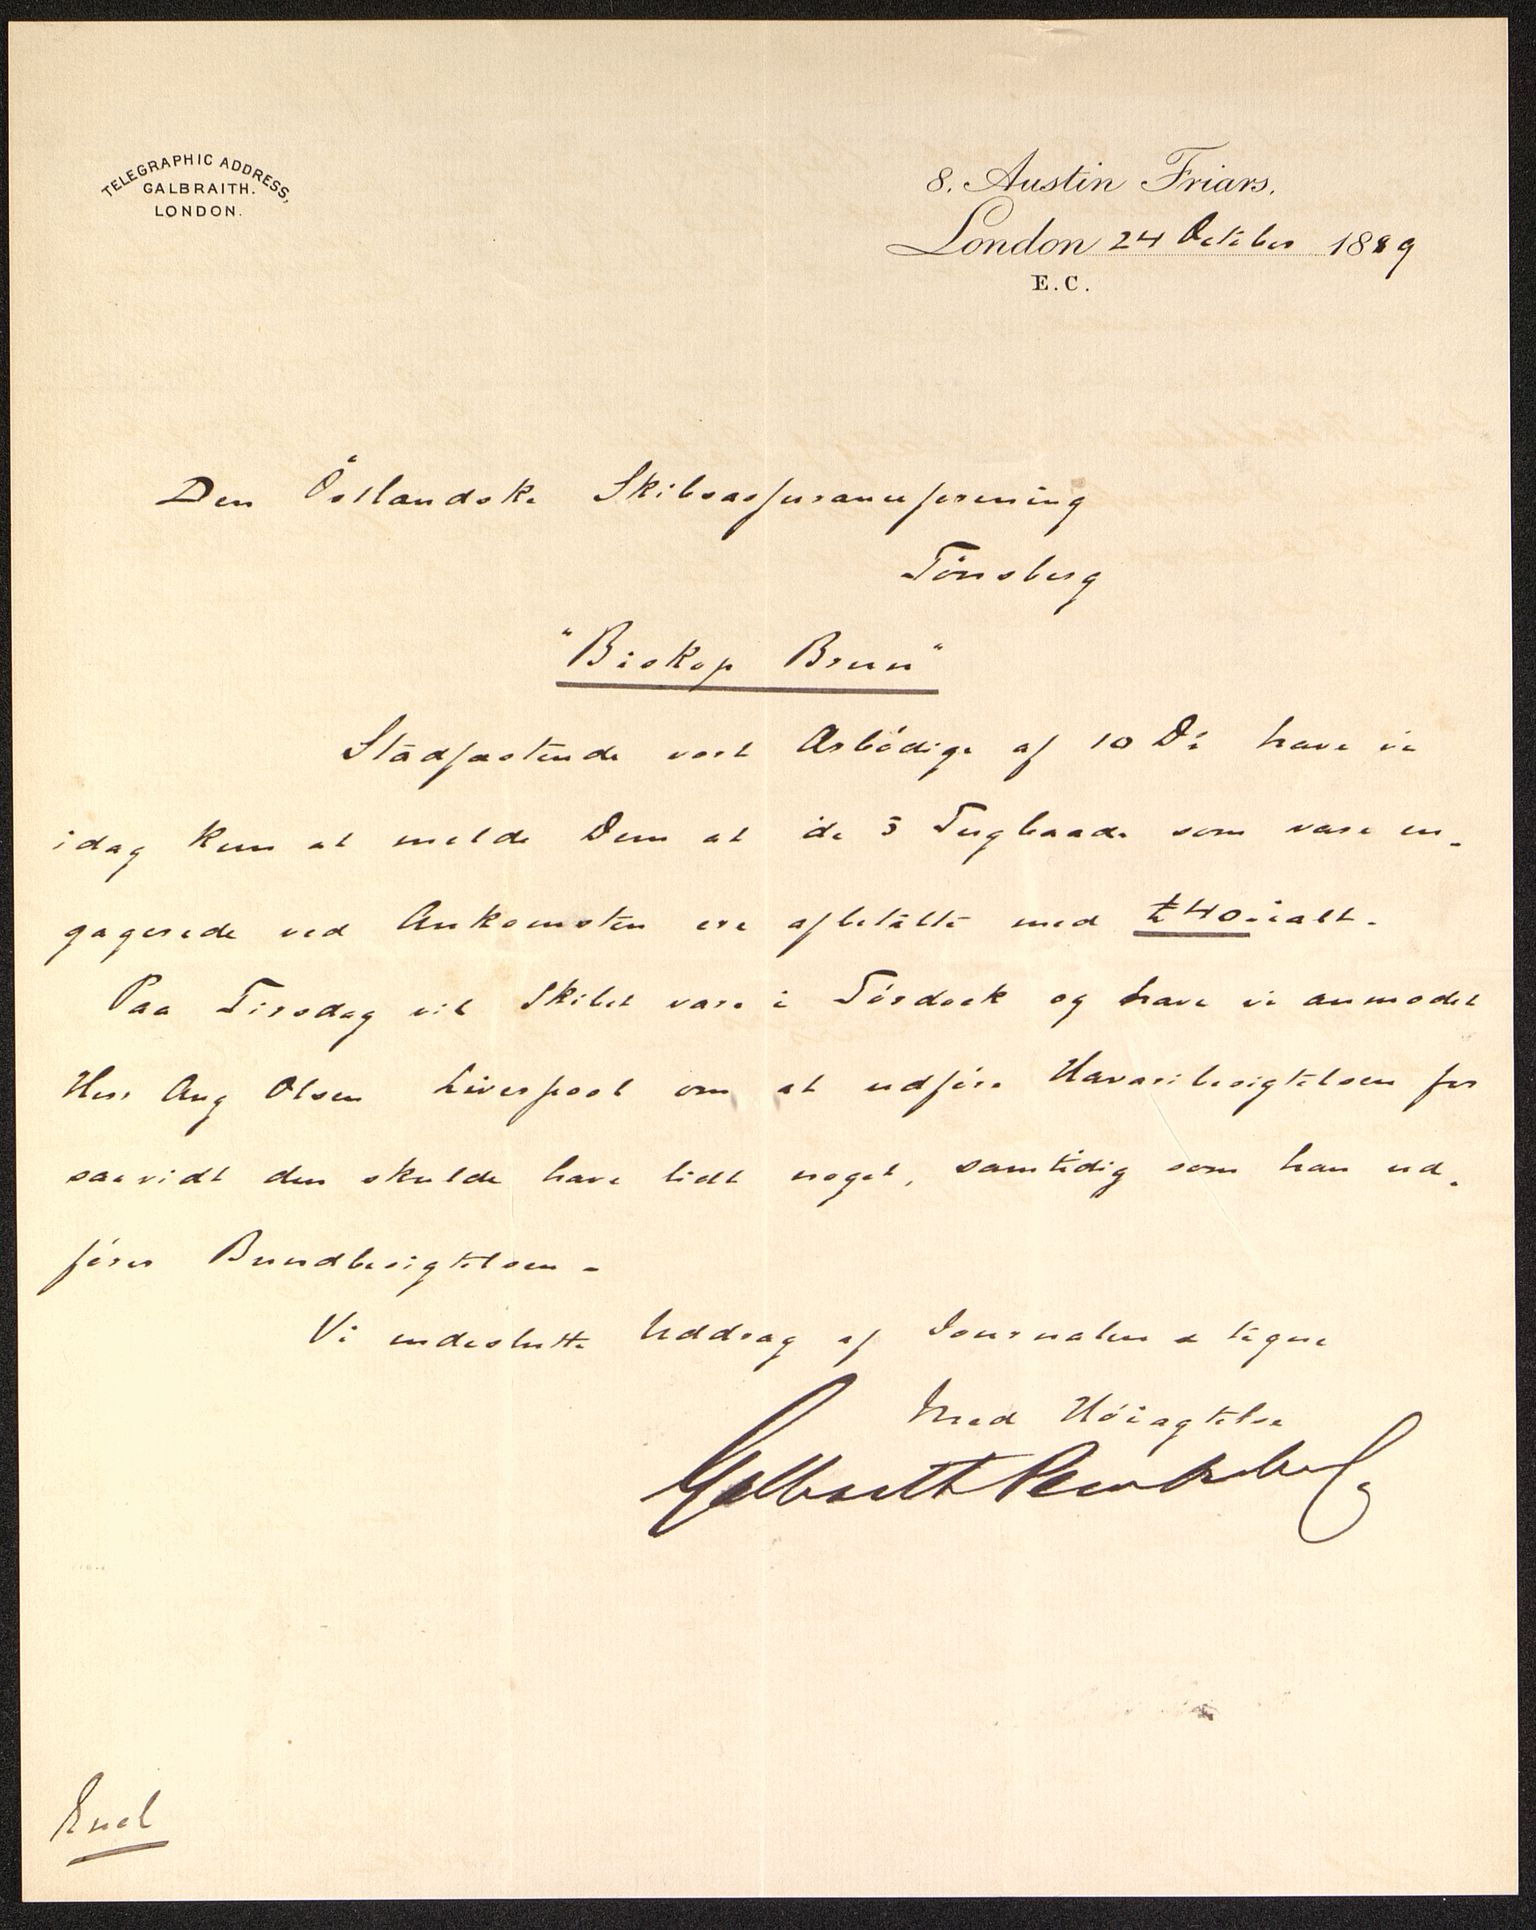 TELEGRAPHIC ADDRESS,
GALBRAITH.
LONDON.
8, Austin Friars,
London 24 October 1889
E.C.
Den Östlandske Skibsassuranceforening
Tönsberg
"Biskop Brun"
Stadfæstende vort Ærbödige af 10 Ds have vi
idag kun at melde Dem at de 3 Tugbaade som vare en-
gagerede ved Ankomsten ere afbetalte med £40.- ialt.
Paa Tirsdag vil Skibet være i Tördock og have vi anmodet
Herr Aug Olsen Liverpool om at udföre Havaribesigtelsen for
saavidt den skulde have lidt noget, samtidig som han ud-
förer Bundbesigtelsen -
Vi indeslutte Uddrag af Journalen & tegne
Med Höiagtelse
Galbraith Pembroke & Co
Encl